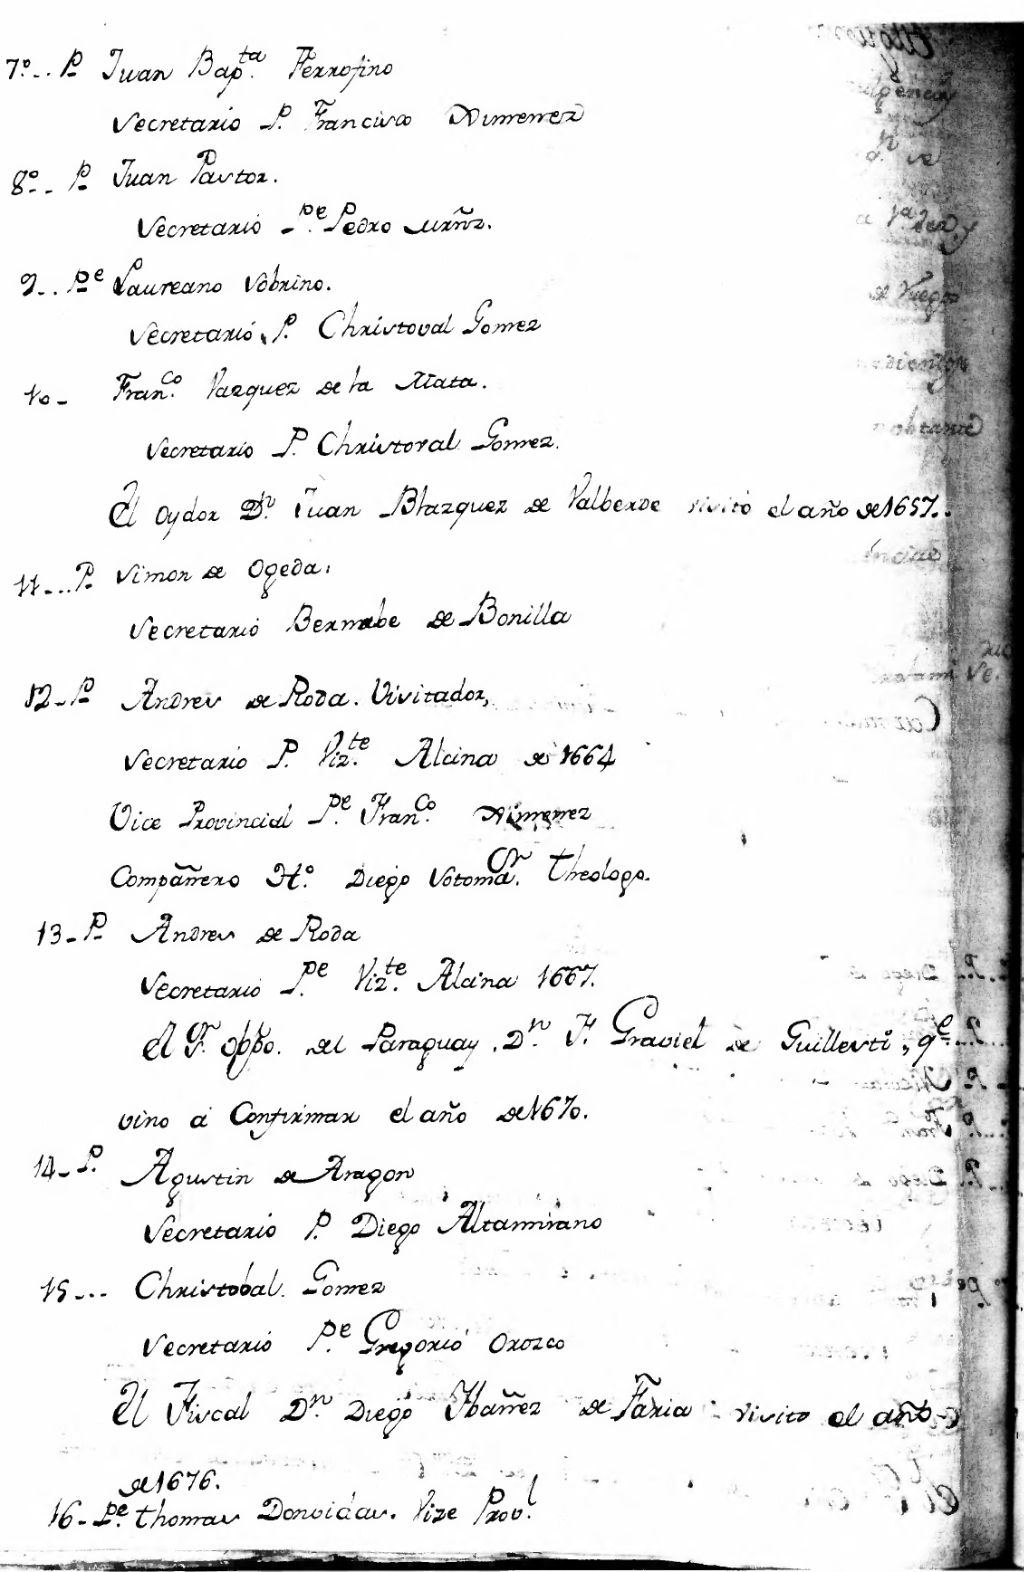 7º.. P. Juan Bapta. Ferrofino
Secretario P. Francisco Ximenez
8º.. P. Juan Pastor.
Secretario Pe. Pedro
9.. Pe Laureano Sobrino.
Secretario P. Christoval Gomez
10- Franco. Vazquez de la Mata.
Secretario P. Christoval Gomez.
El Oydor Dn. Juan Blazquez de Valberde visitó el año de 1657.
11... P. Simon de Ogeda.
Secretario Bernabe de Bonilla
12- P. Andres de Roda. Visitador,
Secretario P. Vizte. Alcina de 1664
Vice Provincial Pe. Franco. Ximenez
Compañero H.º Diego Theologo.
13- P. Andres de Roda
Secretario Pe. Vizte. Alcina 1667.
El obpo. del Paraguay, Dn. F. Graviel de Guillesti, qe.
vino a Confirmar el año de 1670.
14- P. Agustin de Aragon
Secretario P. Diego Altamirano
15... Christobal Gomez
Secretario Pe. Gregorio Orozco
El Fiscal Dn. Diego Ybañez de Faria visito el año
de 1676.
16- Pe. Thomas Donvidas. Vize Provl.